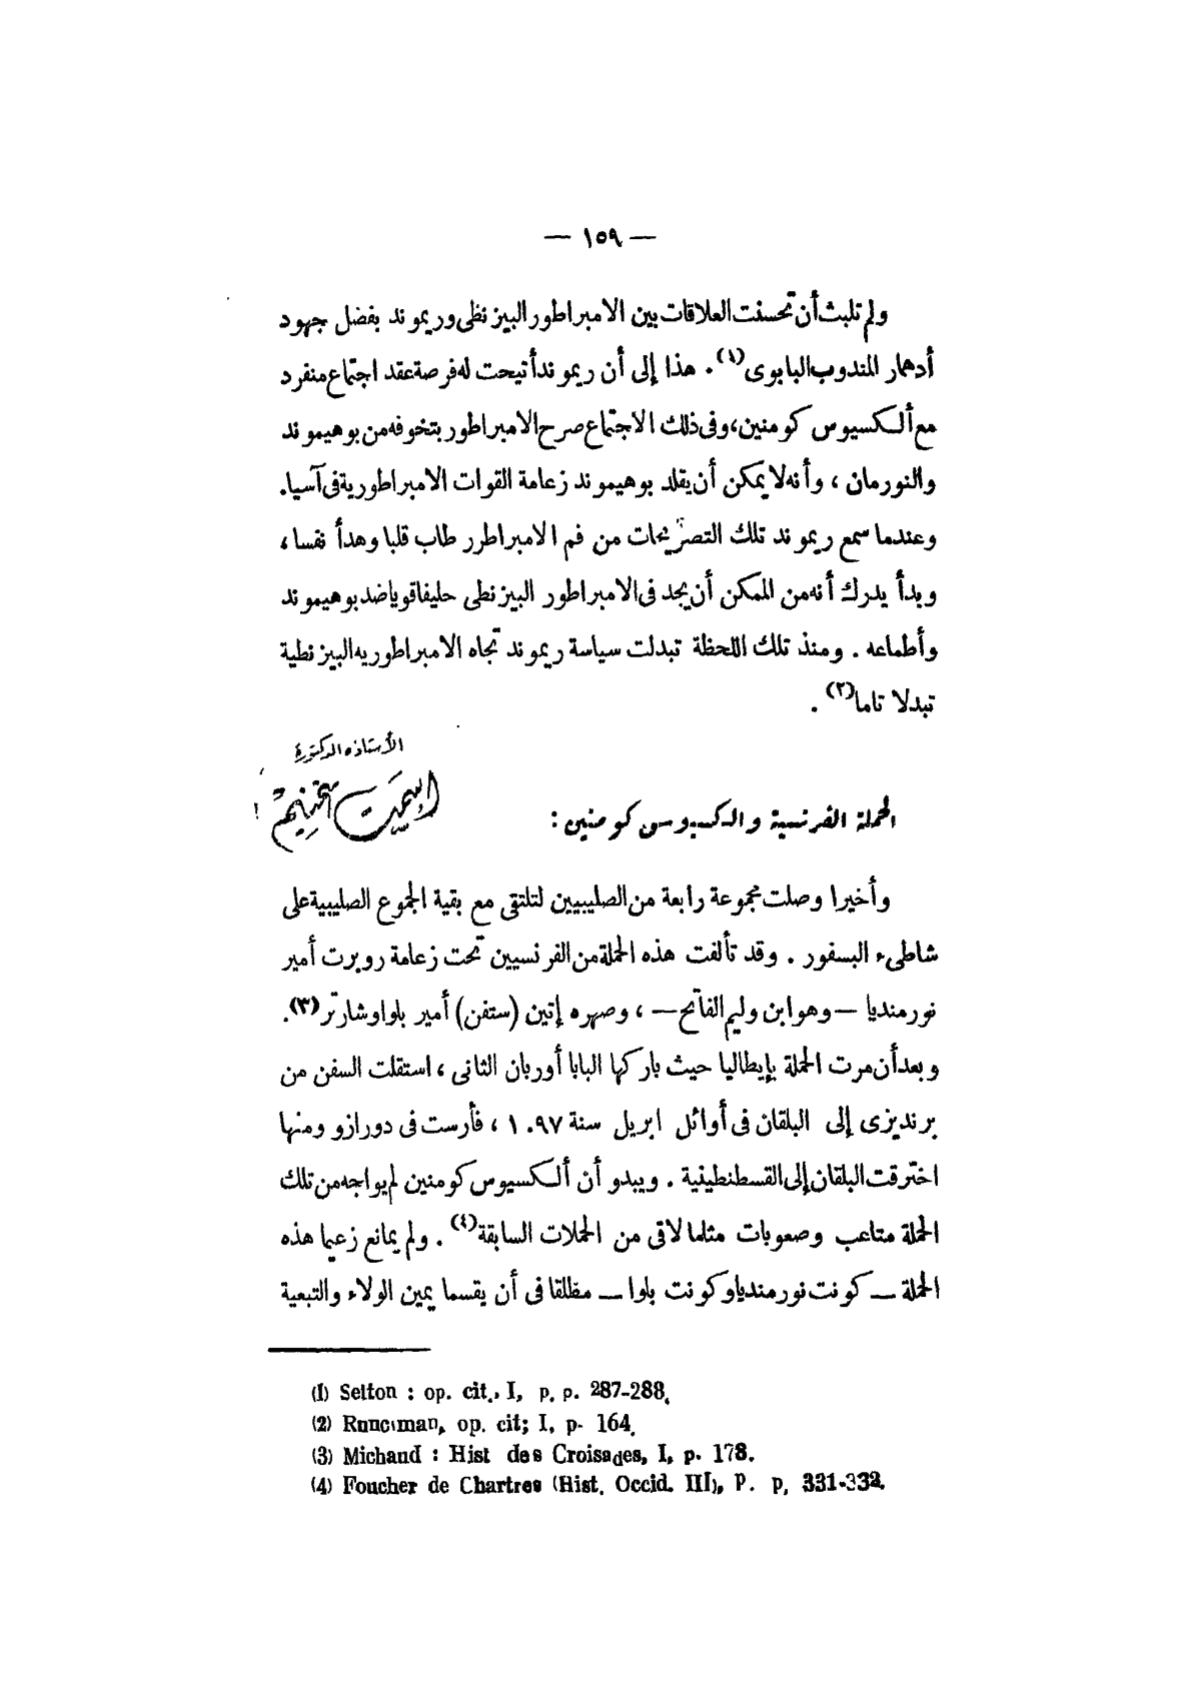 — ١٥٩ —
ولم تلبث أن تحسنت العلاقات بين الامبراطور البيزنطى وريموند بفضل جهود
أدهمار المندوب البابوى(١). هذا إلى أن ريموند أتيحت له فرصة عقد اجتماع منفرد
مع ألكسيوس كومنين، وفى ذلك الاجتماع صرح الامبراطور بتخوفه من بوهيموند
والنورمان ، وأنه لا يمكن أن يقلد بوهيموند زعامة القوات الامبراطورية فى آسيا.
وعندما سمع ريموند تلك التصريحات من فم الامبراطرر طاب قلبا وهدأ نفسا ،
وبدأ يدرك أنه من الممكن أن يجد فى الامبراطور البيزنطى حليفا قويا ضد بوهيموند
وأطماعه . ومنذ تلك اللحظة تبدلت سياسة ريموند تجاه الامبراطوريه البيزنطية
تبدلا تاما(٢) .
الأستاذه الدكتورة
إسمت غنيم
الحملة الفرنسية والكسيوس كومنين :
وأخيرا وصلت مجموعة رابعة من الصليبيين لتلتقى مع بقية الجموع الصليبية على
شاطىء البسفور . وقد تألفت هذه الحملة من الفرنسيين تحت زعامة روبرت أمير
نورمنديا — وهو ابن وليم الفاتح — ، وصهره إتين (ستفن) أمير بلوا وشارتر(٣).
وبعد أن مرت الحملة بإيطاليا حيث باركها البابا أوربان الثانى ، استقلت السفن من
برنديزى إلى البلقان فى أوائل ابريل سنة ١٠٩٧ ، فأرست فى دورازو ومنها
اخترقت البلقان إلى القسطنطينية . ويبدو أن ألكسيوس كومنين لم يواجه من تلك
الحملة متاعب وصعوبات مثلما لاقى من الحملات السابقة(٤) . ولم يمانع زعيما هذه
الحملة — كونت نورمنديا وكونت بلوا — مطلقا فى أن يقسما يمين الولاء والتبعية
(1) Setton : op. cit., I, p. p. 287-288.
(2) Runciman, op. cit; I, p- 164.
(3) Michaud : Hist des Croisades, I, p. 178.
(4) Foucher de Chartres (Hist. Occid. III), P. p, 331-332.